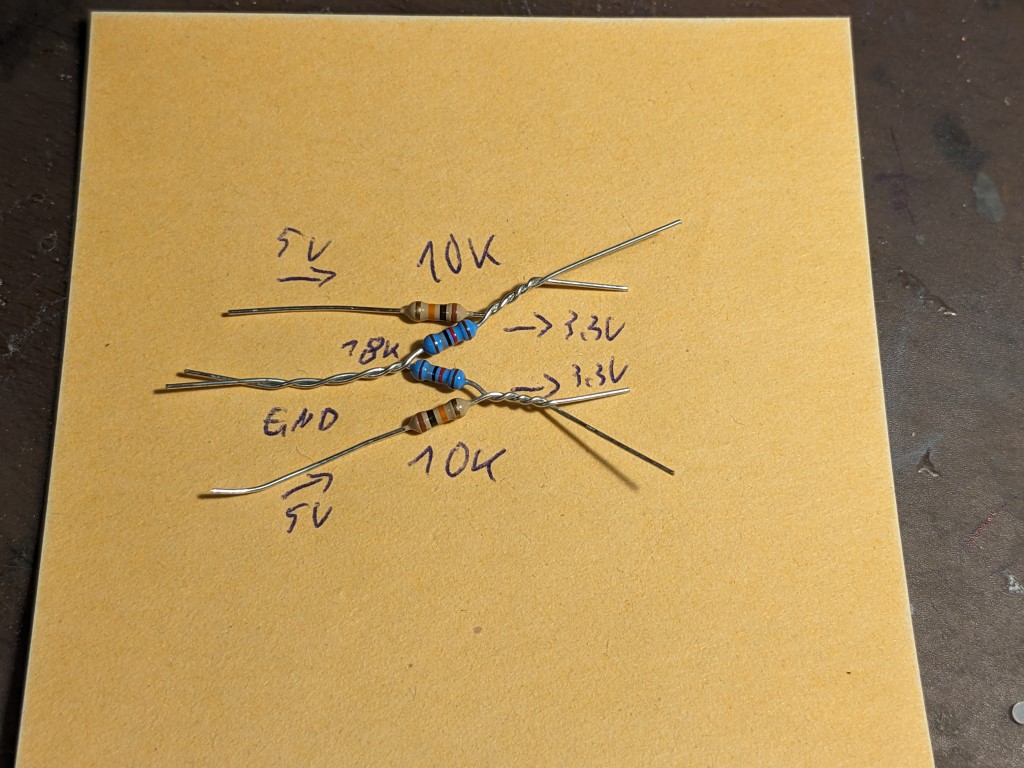 5V
10K
→ 3.3V
18K
→ 3.3V
GND
10K
5V